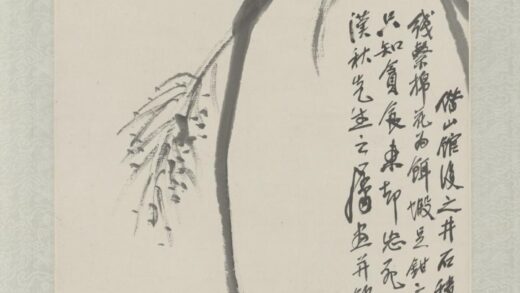 借山館後之井石
綫繫棉花為餌蝦足鉗之
只知貪食來却忘死
漢秋先生之屬畫并